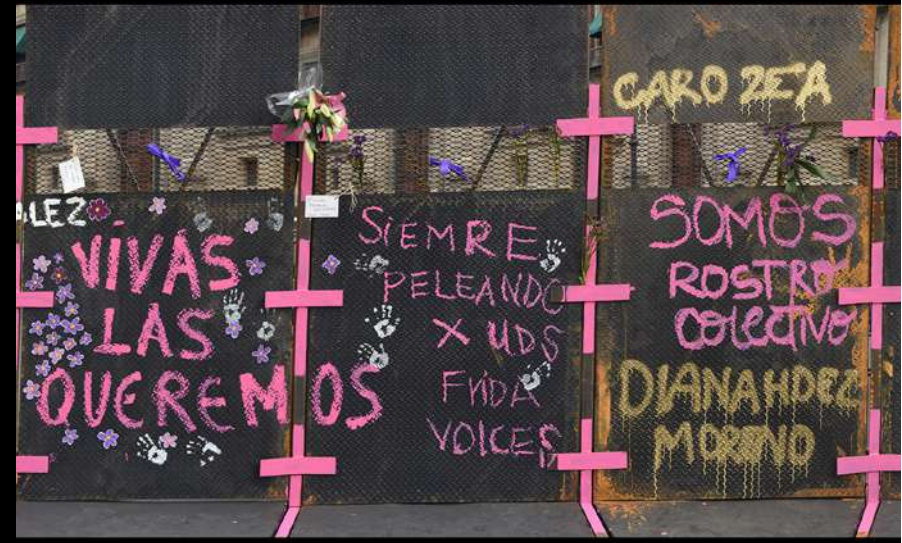 LEZ
VIVAS
LAS
QUEREMOS
SIEMRE
PELEANDO
X UDS
FRIDA
VOICES
CARO ZEA
SOMOS
ROSTRO
COLECTIVO
DIANA HDEZ
MORENO